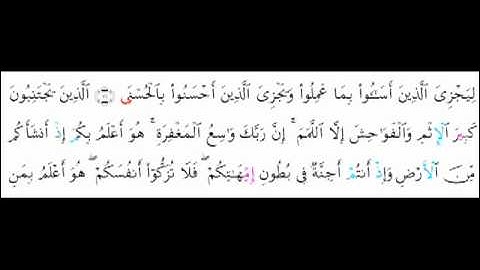 لِيَجْزِىَ ٱلَّذِينَ أَسَـٰٓـُٔوا۟ بِمَا عَمِلُوا۟ وَيَجْزِىَ ٱلَّذِينَ أَحْسَنُوا۟ بِٱلْحُسْنَى ۝ ٱلَّذِينَ يَجْتَنِبُونَ
كَبِيرَ ٱلْإِثْمِ وَٱلْفَوَٰحِشَ إِلَّا ٱللَّمَمَ ۚ إِنَّ رَبَّكَ وَٰسِعُ ٱلْمَغْفِرَةِ ۚ هُوَ أَعْلَمُ بِكُمْ إِذْ أَنشَأَكُم
مِّنَ ٱلْأَرْضِ وَإِذْ أَنتُمْ أَجِنَّةٌ فِى بُطُونِ إِمِّهَـٰتِكُمْ ۖ فَلَا تُزَكُّوٓا۟ أَنفُسَكُمْ ۖ هُوَ أَعْلَمُ بِمَنِ